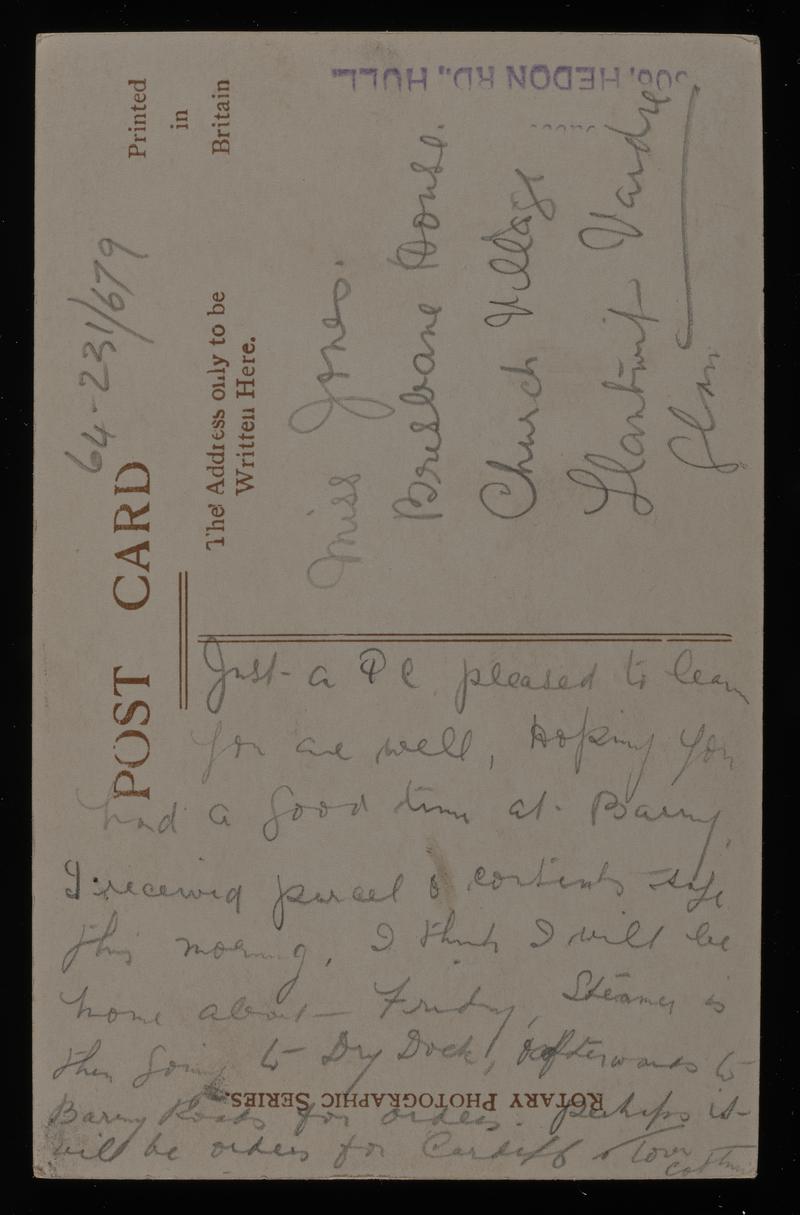 POST CARD
Printed
in
Britain
64-231/679
The Address only to be
Written Here.
306, HEDON RD., HULL
Miss Jones.
Brisbane House.
Church Village
Llantwit Vardre
Glam
Just a PC pleased to learn
you are well, Hoping you
had a good time at Barry,
I received parcel & contents safe
this morning, I think I will be
home about Friday, Steamer is
then going to Dry Dock, & afterwards to
Barry Roads for orders. Perhaps it
will be orders for Cardiff &
ROTARY PHOTOGRAPHIC SERIES.